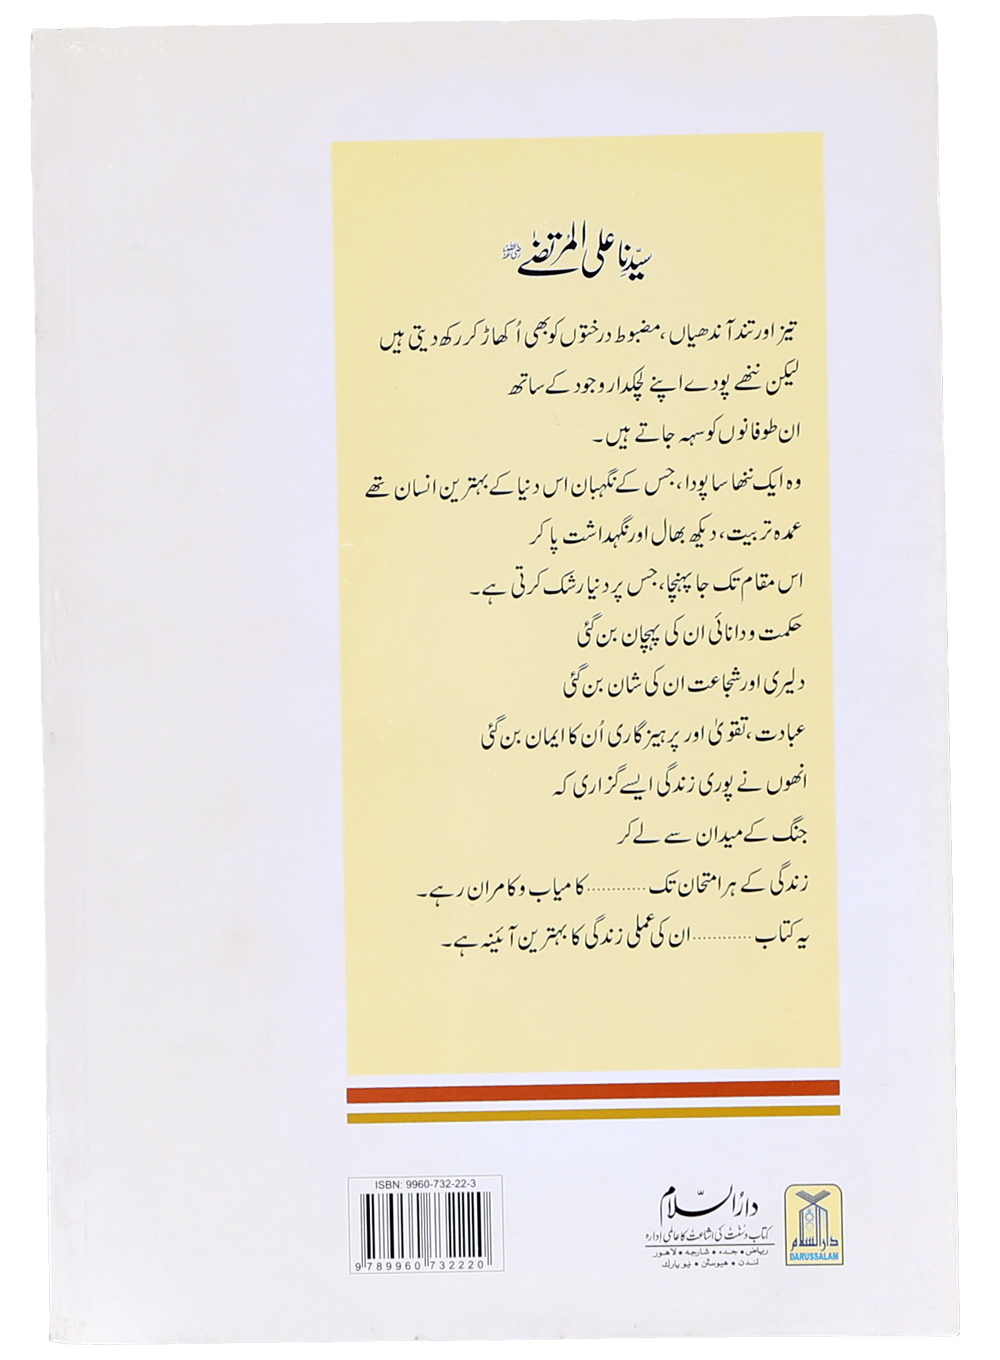 سیّدنا علی المرتضےٰ رضی اللہ عنہ
تیز اور تند آندھیاں، مضبوط درختوں کو بھی اُکھاڑ کر رکھ دیتی ہیں
لیکن ننھے پودے اپنے لچکدار وجود کے ساتھ
ان طوفانوں کو سہہ جاتے ہیں۔
وہ ایک ننھا سا پودا، جس کے نگہبان اس دنیا کے بہترین انسان تھے
عمدہ تربیت، دیکھ بھال اور نگہداشت پا کر
اس مقام تک جا پہنچا، جس پر دنیا رشک کرتی ہے۔
حکمت و دانائی ان کی پہچان بن گئی
دلیری اور شجاعت ان کی شان بن گئی
عبادت، تقویٰ اور پرہیزگاری اُن کا ایمان بن گئی
انھوں نے پوری زندگی ایسے گزاری کہ
جنگ کے میدان سے لے کر
زندگی کے ہر امتحان تک ............ کامیاب و کامران رہے۔
یہ کتاب ............ ان کی عملی زندگی کا بہترین آئینہ ہے۔
ISBN: 9960-732-22-3
9 789960 732220
دارُالسّلام
کتاب و سنّت کی اشاعت کا عالمی ادارہ
ریاض • جدہ • شارجہ • لاہور
لندن • ہیوسٹن • نیو یارک
دارالسلام
DARUSSALAM